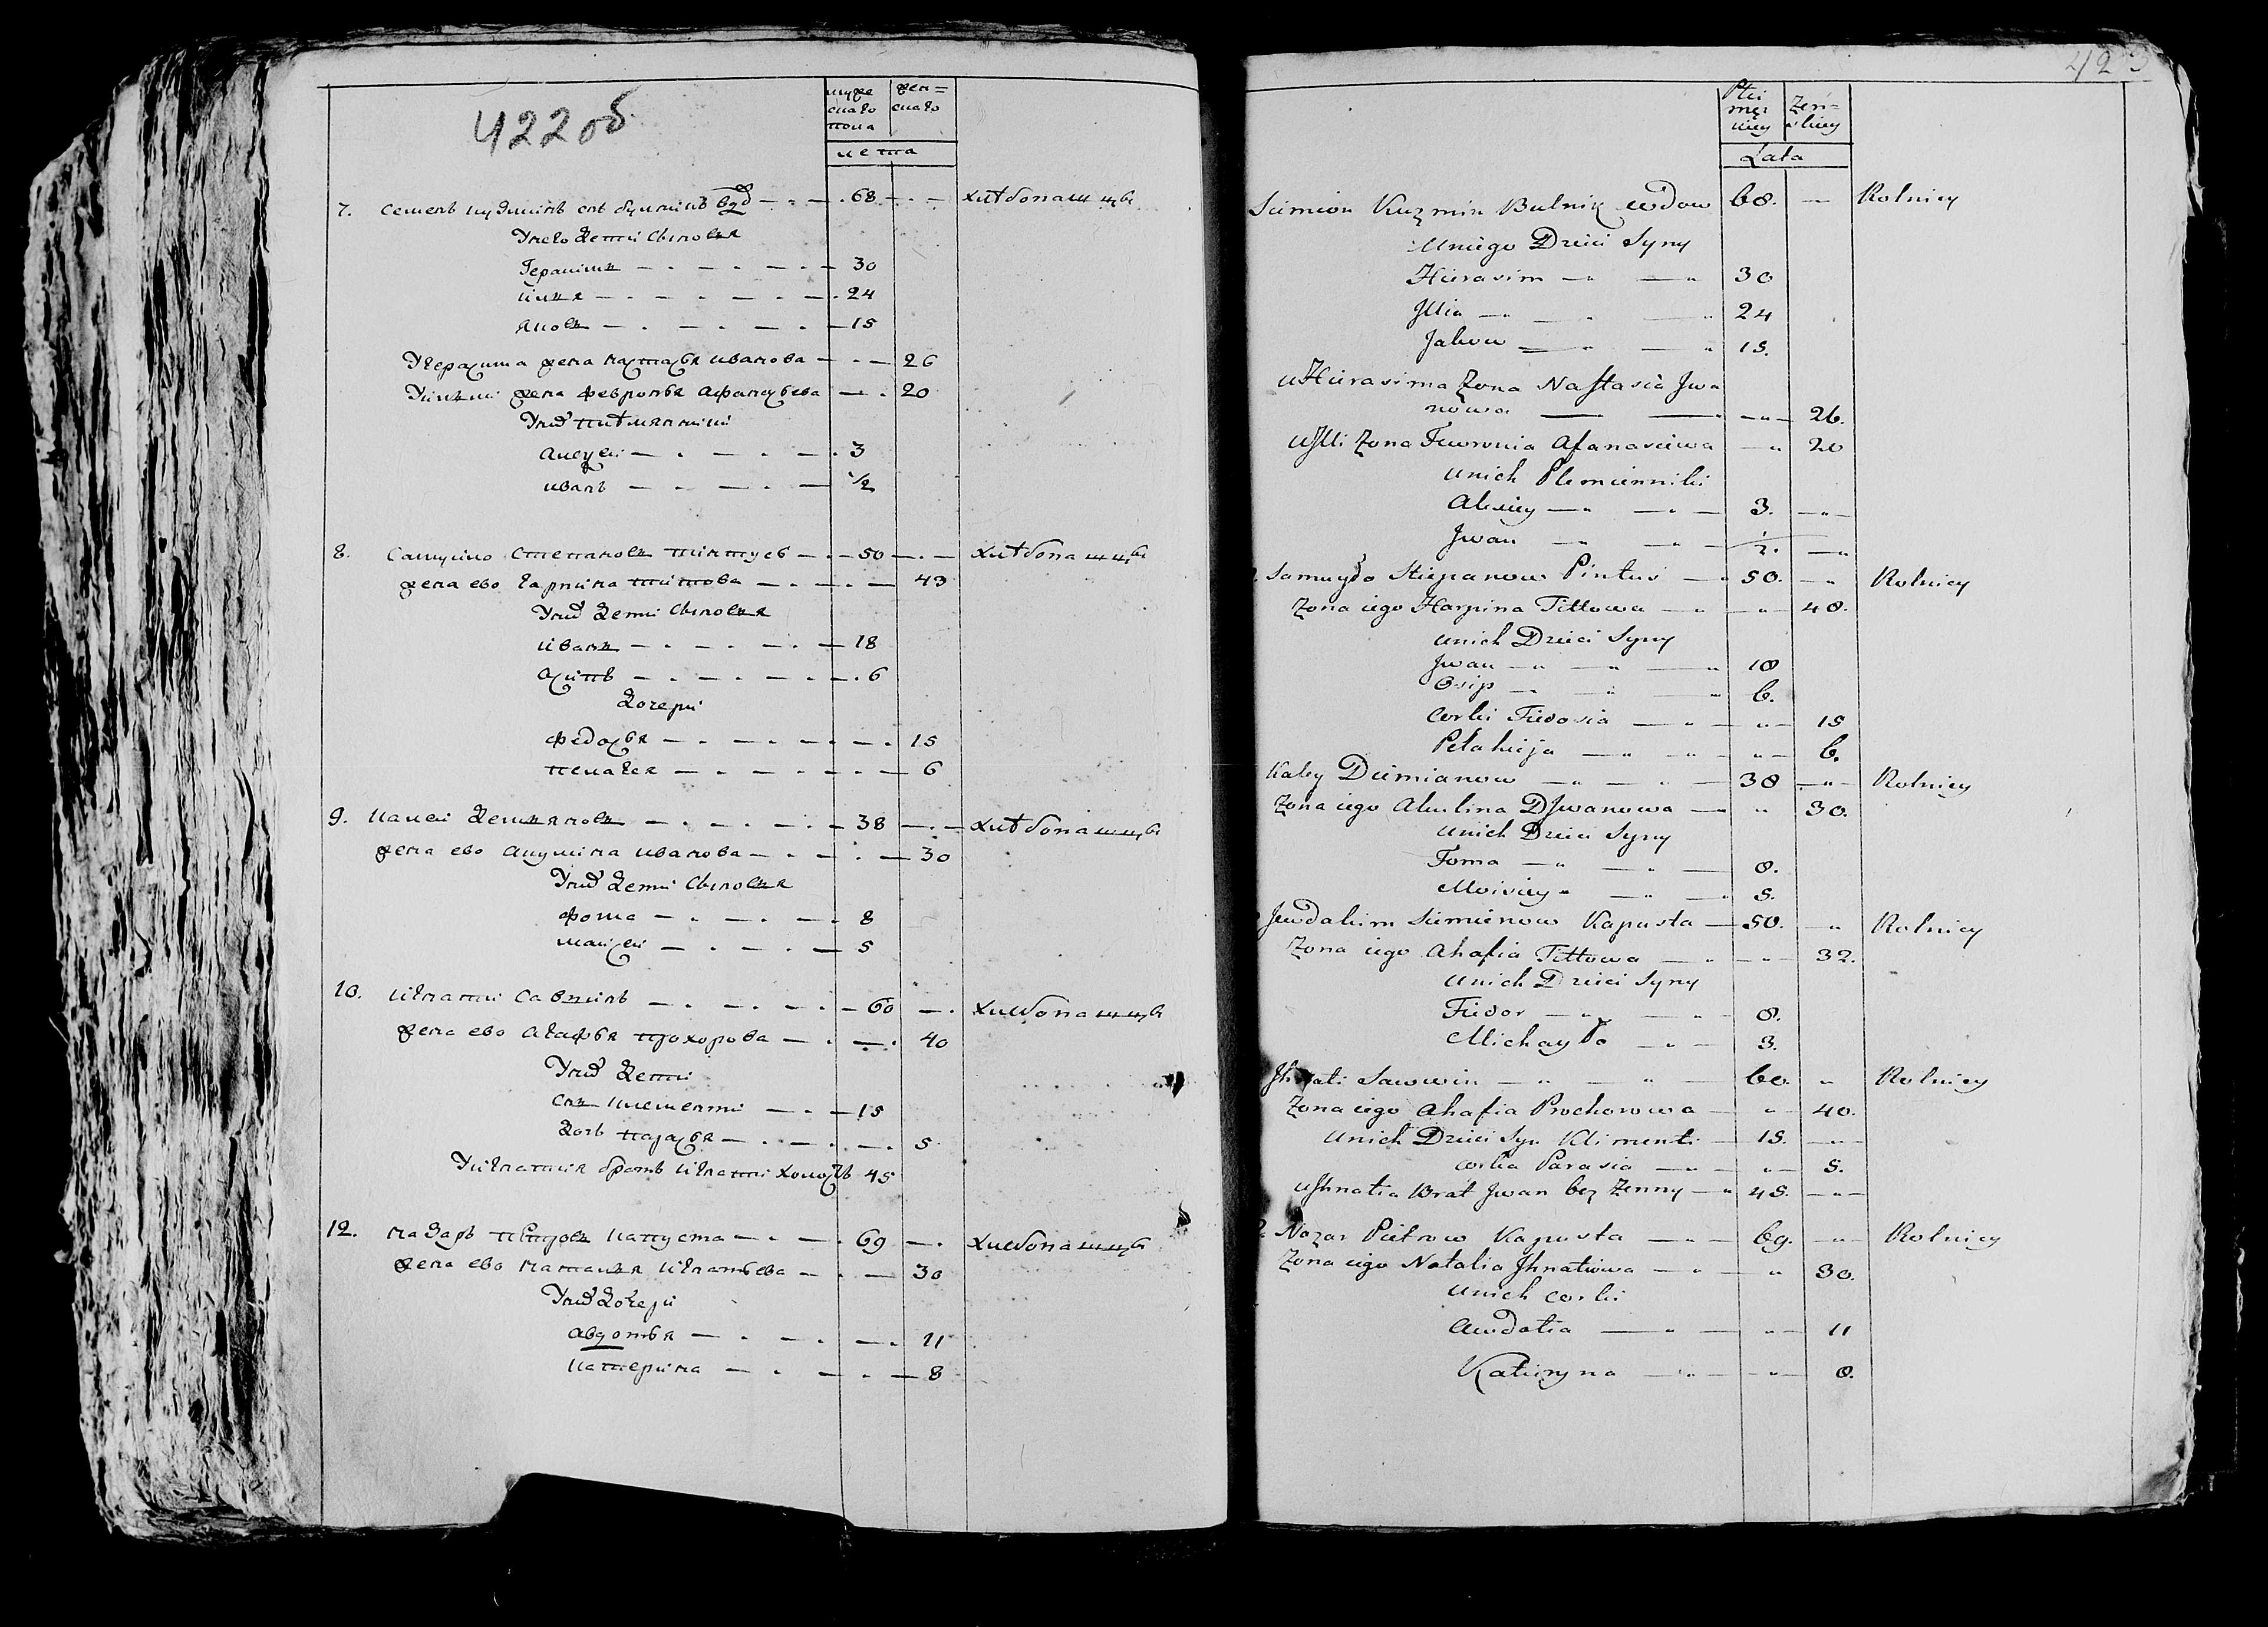 422 об
муже
скаго
пола
жен=
скаго
лета
7. Семенъ кузминъ вдо — 68 — хлѣбопашцы
У него дети сыновья
Герасимъ — 30
Илья — 24
Яковъ — 15
У герасима жена настасья иванова — 26
У ильи жена февронья афанасьева — 20
У них племянники
алексеи — 3
иванъ — 1/2
8. Самуило степановъ пинтусъ — 50 — хлѣбопашцы
жена ево гарпина титова — 43
У них дети сыновья
Иванъ — 18
осипъ — 6
дочери
федосья — 15
пелагея — 6
9. демьяновъ — 38 — хлѣбопашцы
жена ево акулина иванова — 30
У них дети сыновья
фома — 8
моисеи — 5
10. Игнатии савинъ — 60 — хлебопашцы
жена ево агафья прохорова — 40
У них дети
сынъ климентии — 15
дочь парасья — 5
У игнатия братъ холостъ 45
12. назаръ петровъ капуста — 69 — хлебопашцы
жена ево наталья игнатьева — 30
У них дочери
авдотья — 11
катерина — 8
423
Płci
męz
kiey
Żeń=
skiey
Lata
Siemion Kuzmin Bulnik wdow 68. — Rolnicy
u niego Dzieci Syny
Hierasim — 30
Jllia — 24
Jakow — 15.
u Hierasima Żona Nastasia Jwa
nowa — 26.
u Jlli Żona Fewronia Afanasiewa — 20
u nich Plemienniki
Alexiey — 3. —
Jwan — 1/2. —
Samuyło Stiepanow Pintus — 50. — Rolnicy
Żona iego Harpina Tittowa — 48.
u nich Dzieci Syny
Jwan — 18
Osip — 6.
corki Fiedosia — 15
Pełahieja — 6.
Diemianow — 38 — Rolnicy
Żona iego Akulina Jwanowa — 30.
u nich Dzieci Syny
Foma — 8.
Moisiey — 5.
Jewdakim Siemienow Kapusta — 50. — Rolnicy
Żona iego Ahafia Tittowa — 32.
u nich Dzieci Syny
Fiedor — 8.
Michayło — 3.
Jhnati Sawwin — 60. — Rolnicy
Żona iego Ahafia Prochorowa — 40.
u nich Dzieci Syn Klimenti — 15. —
corka Parasia — 5.
u Jhnatia Brat Jwan bez Żenny — 45. —
Nazar Pietrow Kapusta — 69. — Rolnicy
Żona iego Natalia Jhnatiewa — 30.
u nich corki
Awdotia — 11
Katieryna — 8.